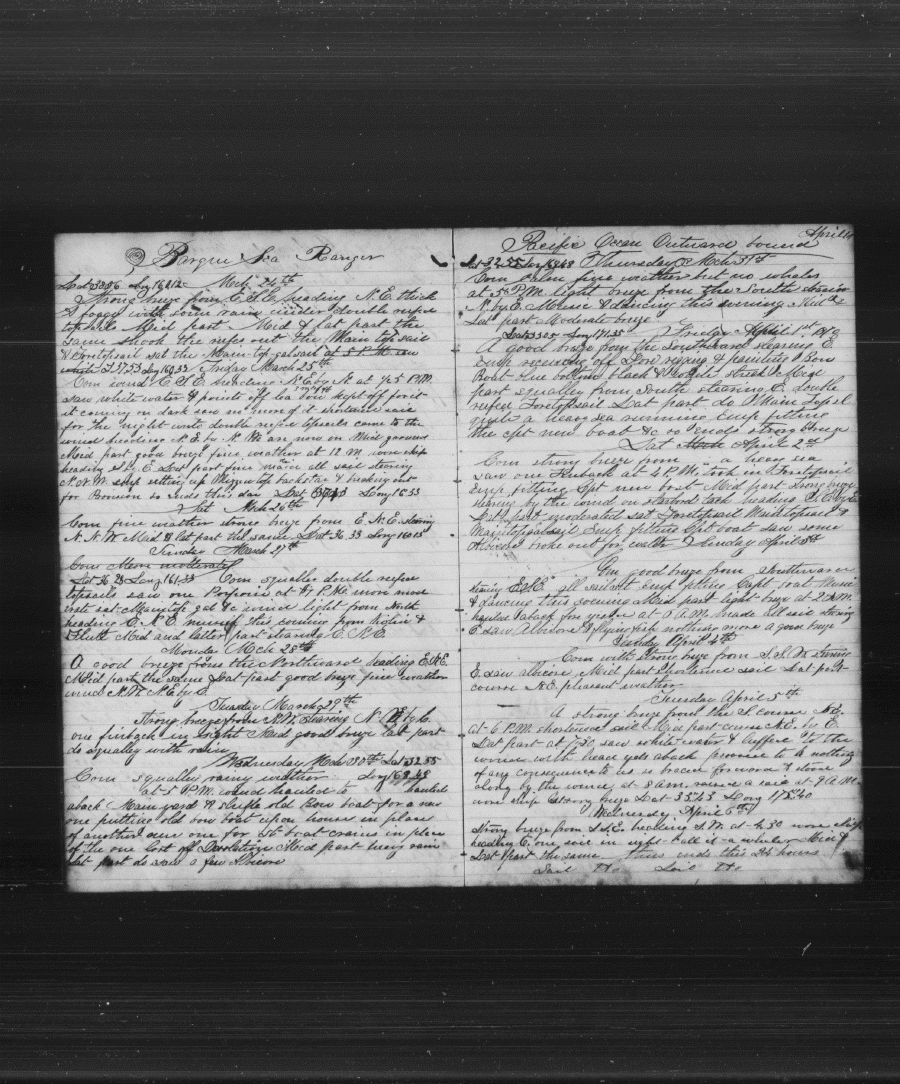 Barque Sea Ranger
Mch 24th
Strong breeze from E.S.E. heading N.E. thick
& foggy with some rain under double reefed
topsails Mid part Mid & last part the
same shook the reefs out the Main top sail
& Foretopsail set the Main top gal sail at 5 P.M.
Long 160.33 Friday March 25th
Com wind E.S.E. heading N.E. by N. at P.M.
saw white water 4 points off lea bow kept off for it
it coming on dark saw no more of it shortened sail
for the night unto double reefed topsails came to the
wind heading N.E. by N. We are now on
Mid part good breeze fine weather at 12 M. wore ship
heading S. by E. Last part fine all sail steering
N.N.W. emp setting up Mizzen top backstay & breaking out
for Bread so ends this day Lat Long
Sat Mch 26th
Com fine weather strong breeze from E.N.E. steering
N.N.W. Mid & last part the same Lat 36.33 Long
Sunday March 27th
Com Mom moderately
Long 161.33 Com squalley double reefed
topsails saw one Porpoise at P.M. wore
ship set Maintop gal & wind light from North
heading E.N.E. this evening from violin &
Flute Mid and latter part steering E.N.E.
Monday Mch 28th
A good breeze from the Northward heading E.N.E.
Mid part the same Last part good breeze fine weather
wind N.W. N.E. by E.
Tuesday March 29th
Strong breeze from N.W. steering N.E. by E.
one finback in sight Mid good breeze last part
do squally with rain
Wednesday Mch 30th Lat 32.55
Com squalley rainy weather Long 168.48
at 5 P.M. wind hauled to hauled
aback Main yard & shifted old Bow boat for a new
one putting old bow boat upon house in place
of another new one for St boat crains in place
of the one lost off Desolation Mid part heavy rain
last part do saw a few Albicore
April
Pacific Ocean Outward bound
Lat 32.55 Long 168.48 Thursday Mch 31st
Com Calm fine weather but no whales
at 5 P.M. light breeze from the South steering
N. by E. Music & dancing this evening Mid &
Last part Moderate breeze
Long 171.35 Friday April 1st
A good breeze from the Southward stearing E
Emp receiving off Low rigging & painting Bow
Boat blue bottom black & white streek Mid
part squalley from South stearing E. double
reefed Foretopsail Last part do & Main Topsl
quite a heavy sea running Emp fitting
the Cpt new boat &c so ends strong breeze
Sat April 2nd
Com strong breeze from " a heavy sea
saw one Finback at 4 P.M. took in Foretopsail
Emp fitting Cpt new boat Mid part strong breeze
stearing by the wind on starbord tack heading S.E. by E
Last part moderated set Foretopsail Maintopsail &
Maintopgalsail Emp fitting Cpt boat saw some
Albicore broke out for water Sunday April 3d
Com good breeze from Southward
steering E.N.E. all sail set Emp fitting Capt boat Music
& dancing this evening Mid part light breeze at 2 A.M.
hauled aback for at 5 A.M. made all sail steering
E. saw Albicore & flying fish nothing more a good breeze
Monday April 4th
Com with strong breeze from S.S.W. steering
E. saw albicore Mid part shortened sail Last part
course N.E. pleasant weather
Tuesday April 5th
A strong breeze from the S. course N.E.
at 6 P.M. shortened sail Mid part course N.E. by E.
Last part at 7.30 saw white water & luffed to the
wind with head yds aback proved to be nothing
of any consequence to us so braced forward & stood
along by the wind at 8 am raised a sail at 9 A.M
wore ship strong breeze Lat 35.45 Long 175.40
Wednesday April 6th
Strong breeze from S.S.E. heading S.W. at 4.30 wore ship
heading E. one sail in sight call it a whaler Mid &
Last part the same thus ends this 24 hours
Sail Ho Sail Ho